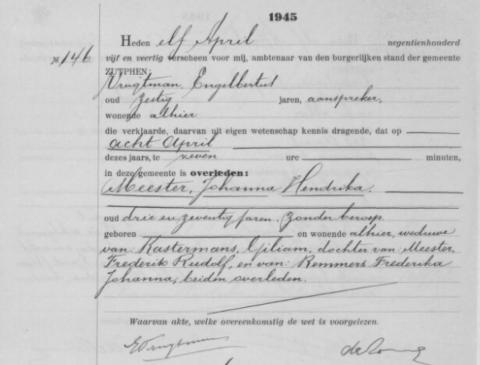 1945
№ 146
Heden elf April negentienhonderd
vijf en veertig verscheen voor mij, ambtenaar van den burgerlijken stand der gemeente
ZUTPHEN:
Vrugtman, Engelbertus
oud zestig jaren, aanspreker,
wonende alhier
die verklaarde, daarvan uit eigen wetenschap kennis dragende, dat op
acht April
dezes jaars, te zeven ure minuten,
in deze gemeente is overleden:
Meester, Johanna Hendrika.
oud drie en zeventig jaren, zonder beroep
geboren en wonende alhier, weduwe
van Kastermans, Giliam, dochter van Meester,
Frederik Rudolf, en van Remmers Frederika
Johanna, beiden overleden.
Waarvan akte, welke overeenkomstig de wet is voorgelezen.
EVrugtman